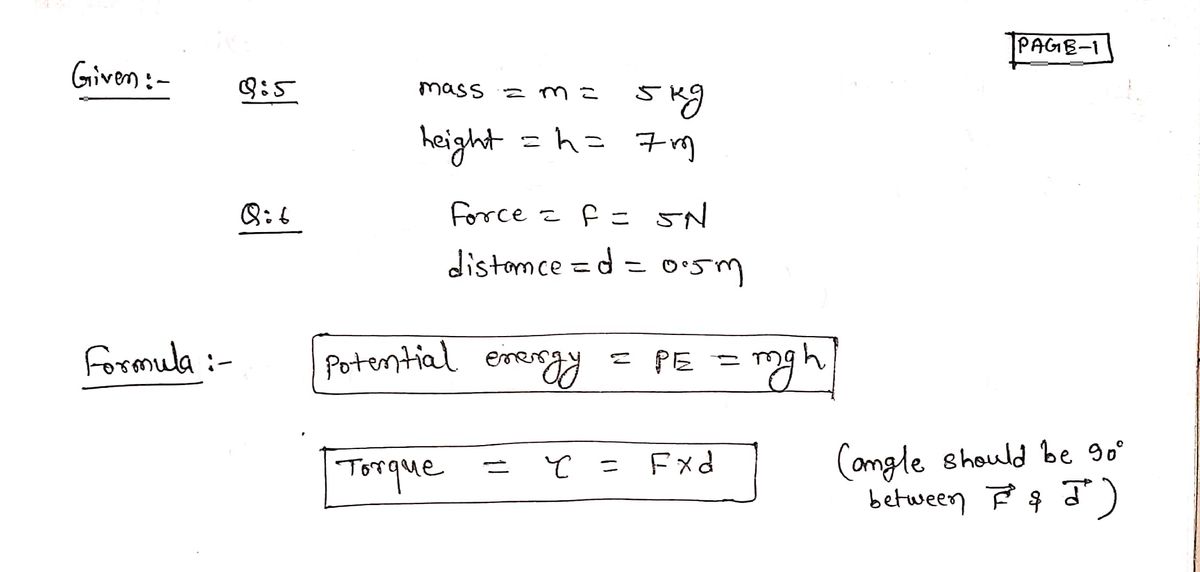 PAGE-1
Given :- Q:5 mass = m = 5 kg
height = h = 7m
Q:6 Force = f = 5N
distance = d = 0.5m
Formula :- Potential energy = PE = mgh
Torque = τ = F×d (angle should be 90°
between F⃗ & d⃗ )